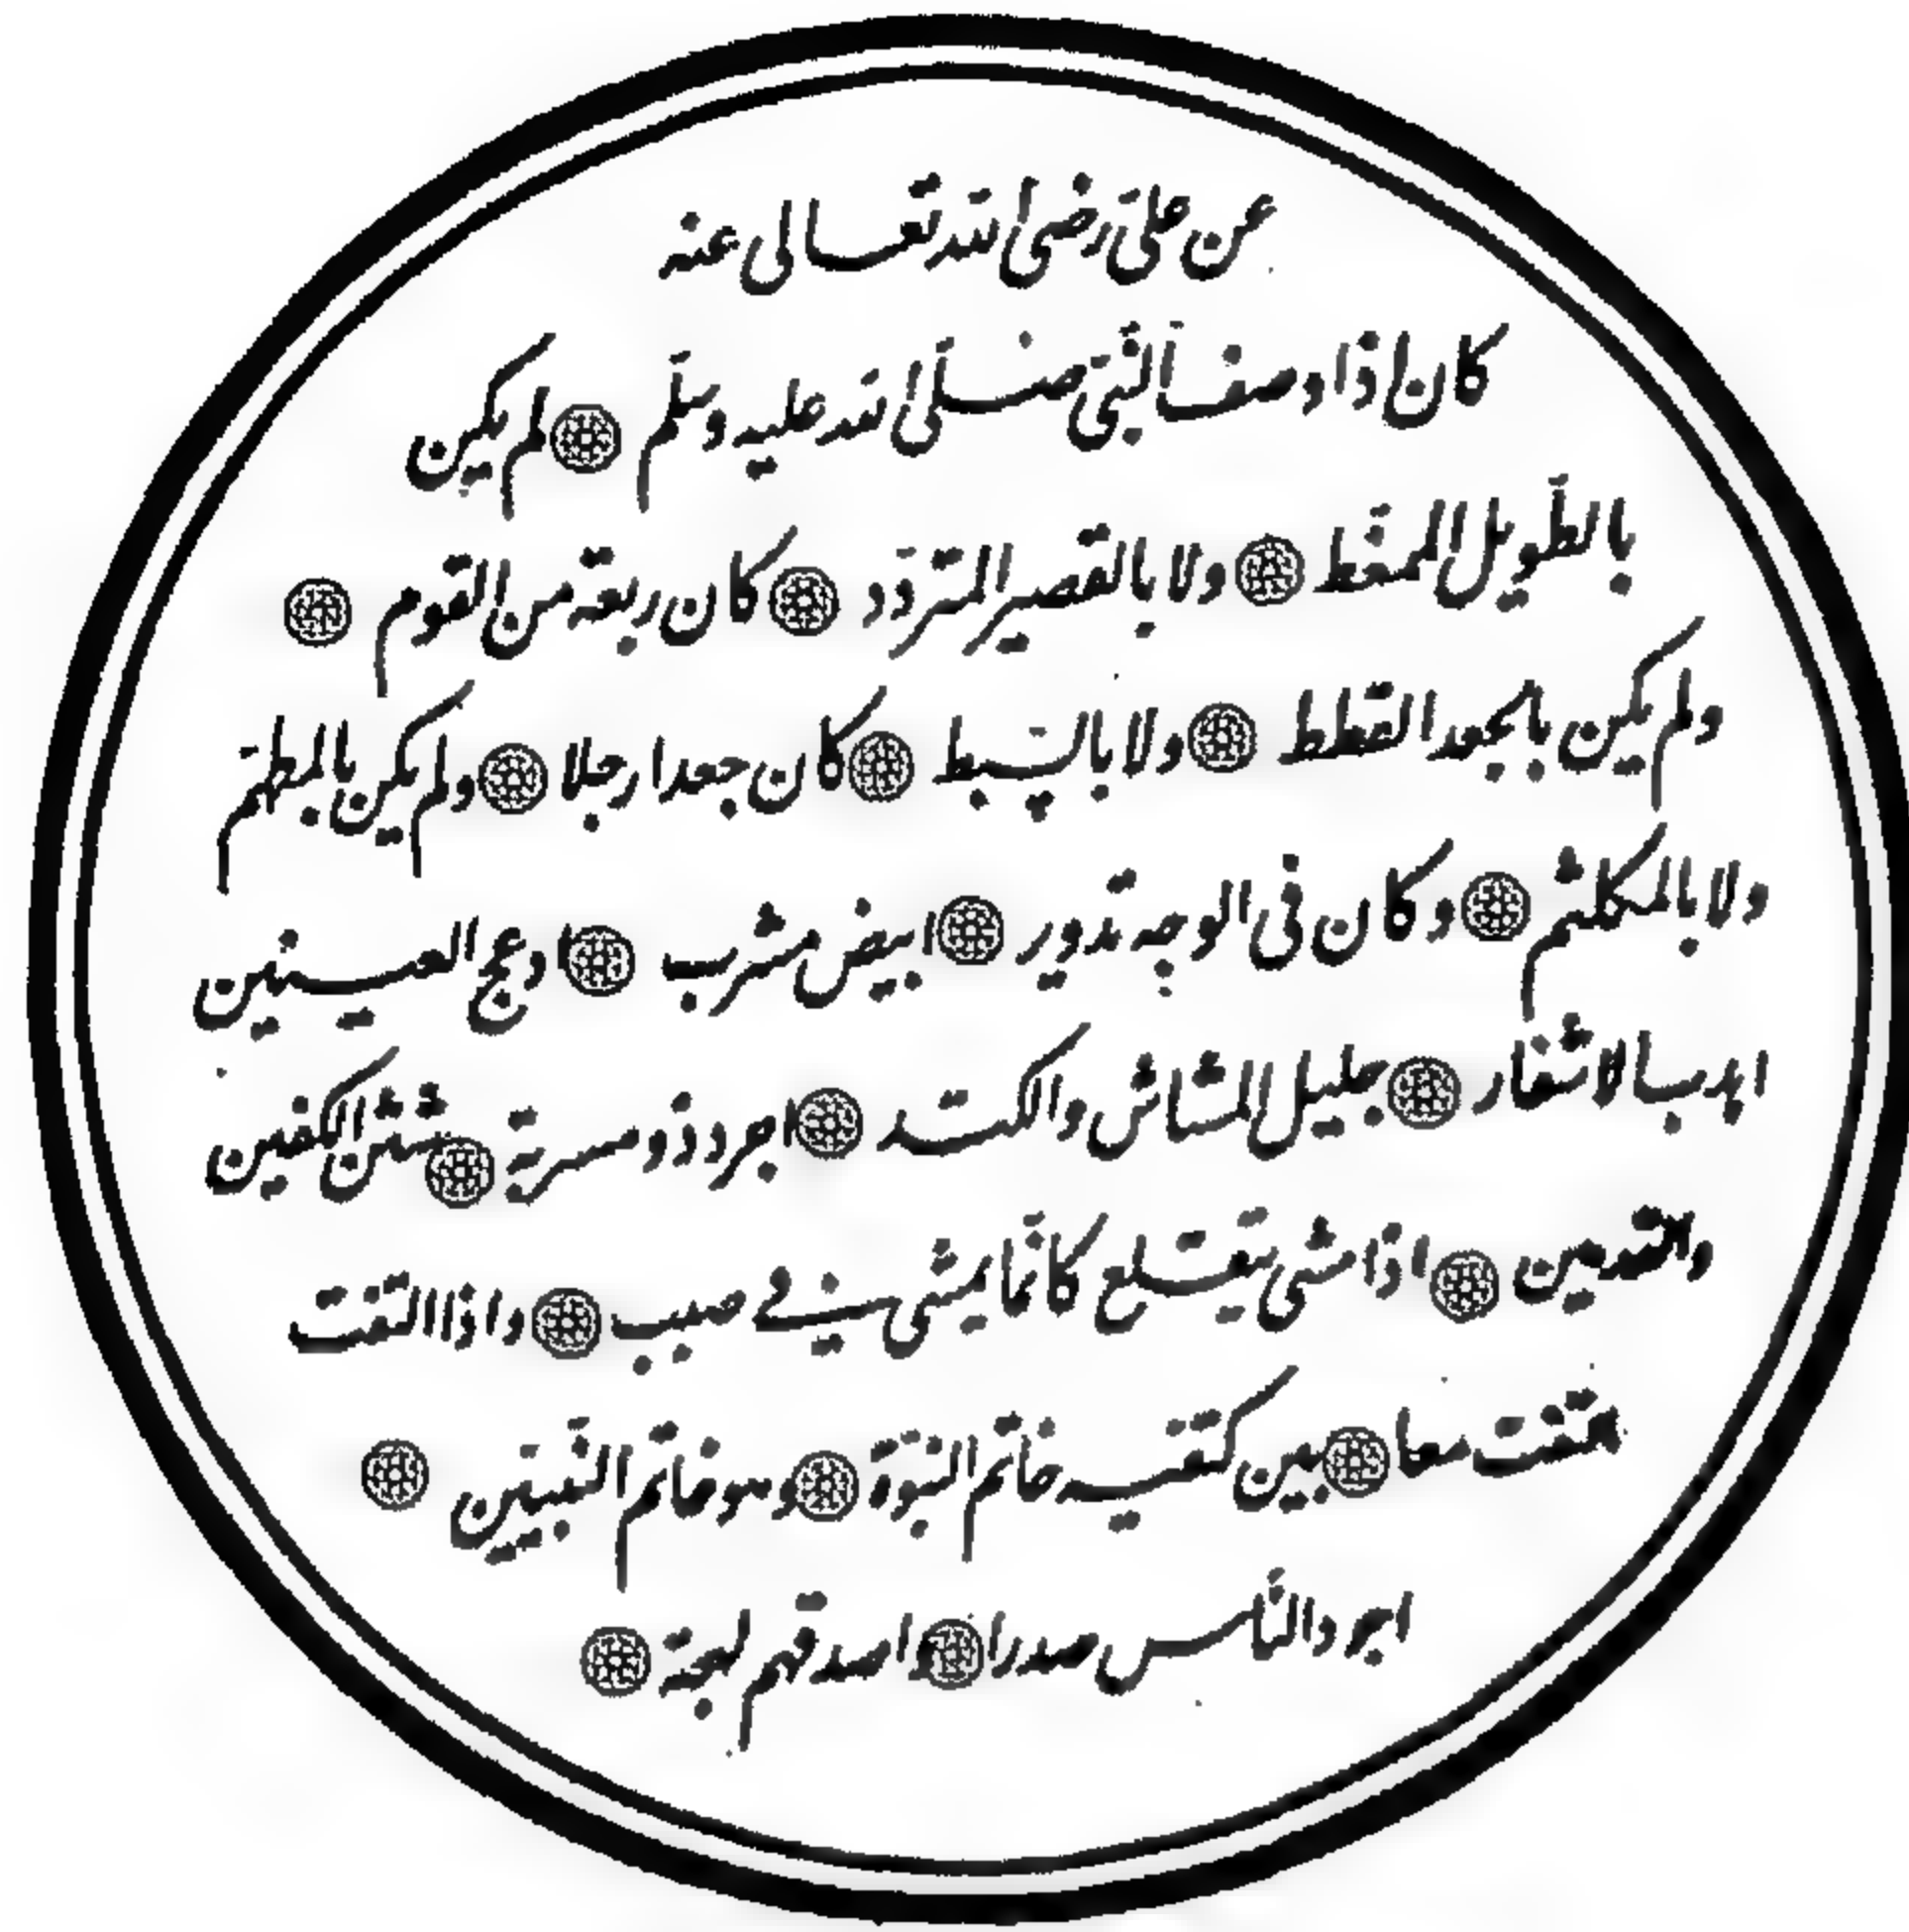 عن علي رضی الله تعالی عنه
كان اذا وصف النبی صلی الله عليه وسلم لم يكن
بالطويل الممغط ولا بالقصير المتردد كان ربعة من القوم
ولم يكن بالجعد القطط ولا بالسبط كان جعدا رجلا ولم يكن بالمطهم
ولا بالمكلثم وكان فی الوجه تدوير ابيض مشرب ادعج العينين
اهدب الاشفار جليل المشاش والكتد اجرد ذو مسربة شثن الكفين
والقدمين اذا مشی يتقلع كانما يمشی فے صبب واذا التفت
التفت معا بين كتفيه خاتم النبوة وهو خاتم النبيين
اجود الناس صدرا واصدقهم لهجة